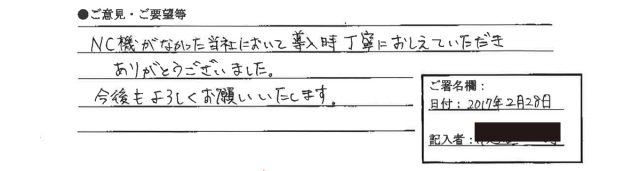 ●ご意見・ご要望等
NC機がなかった当社において導入時丁寧におしえていただき
ありがとうございました。
今後もよろしくお願いいたします。
ご署名欄：
日付：2017年2月28日
記入者：